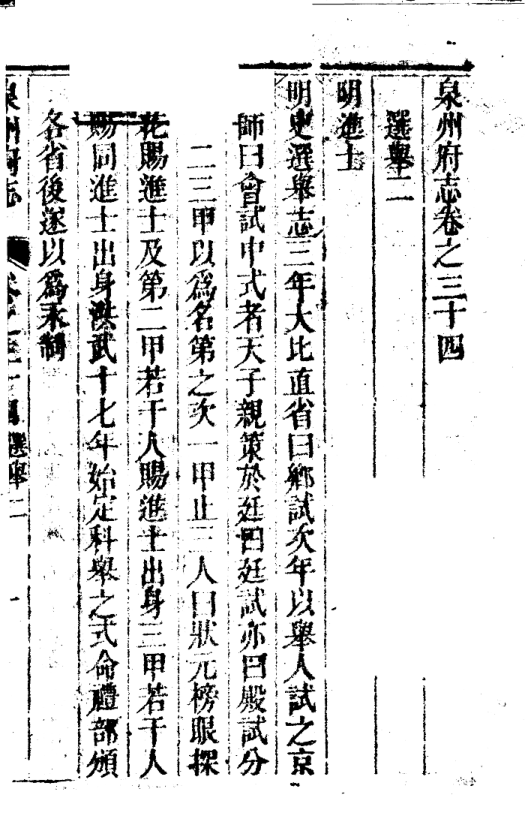 泉州府志卷之三十四
選舉二
明進士
明史選舉志三年大比直省曰鄉試次年以舉人試之京
師曰會試中式者天子親策於廷曰廷試亦曰殿試分
二三甲以爲名第之次一甲止三人曰狀元榜眼探
花賜進士及第二甲若干人賜進士出身三甲若干人
賜同進士出身洪武十七年始定科舉之式命禮部頒
各省後遂以爲永制
泉州府志 卷之三十四 選舉二 一